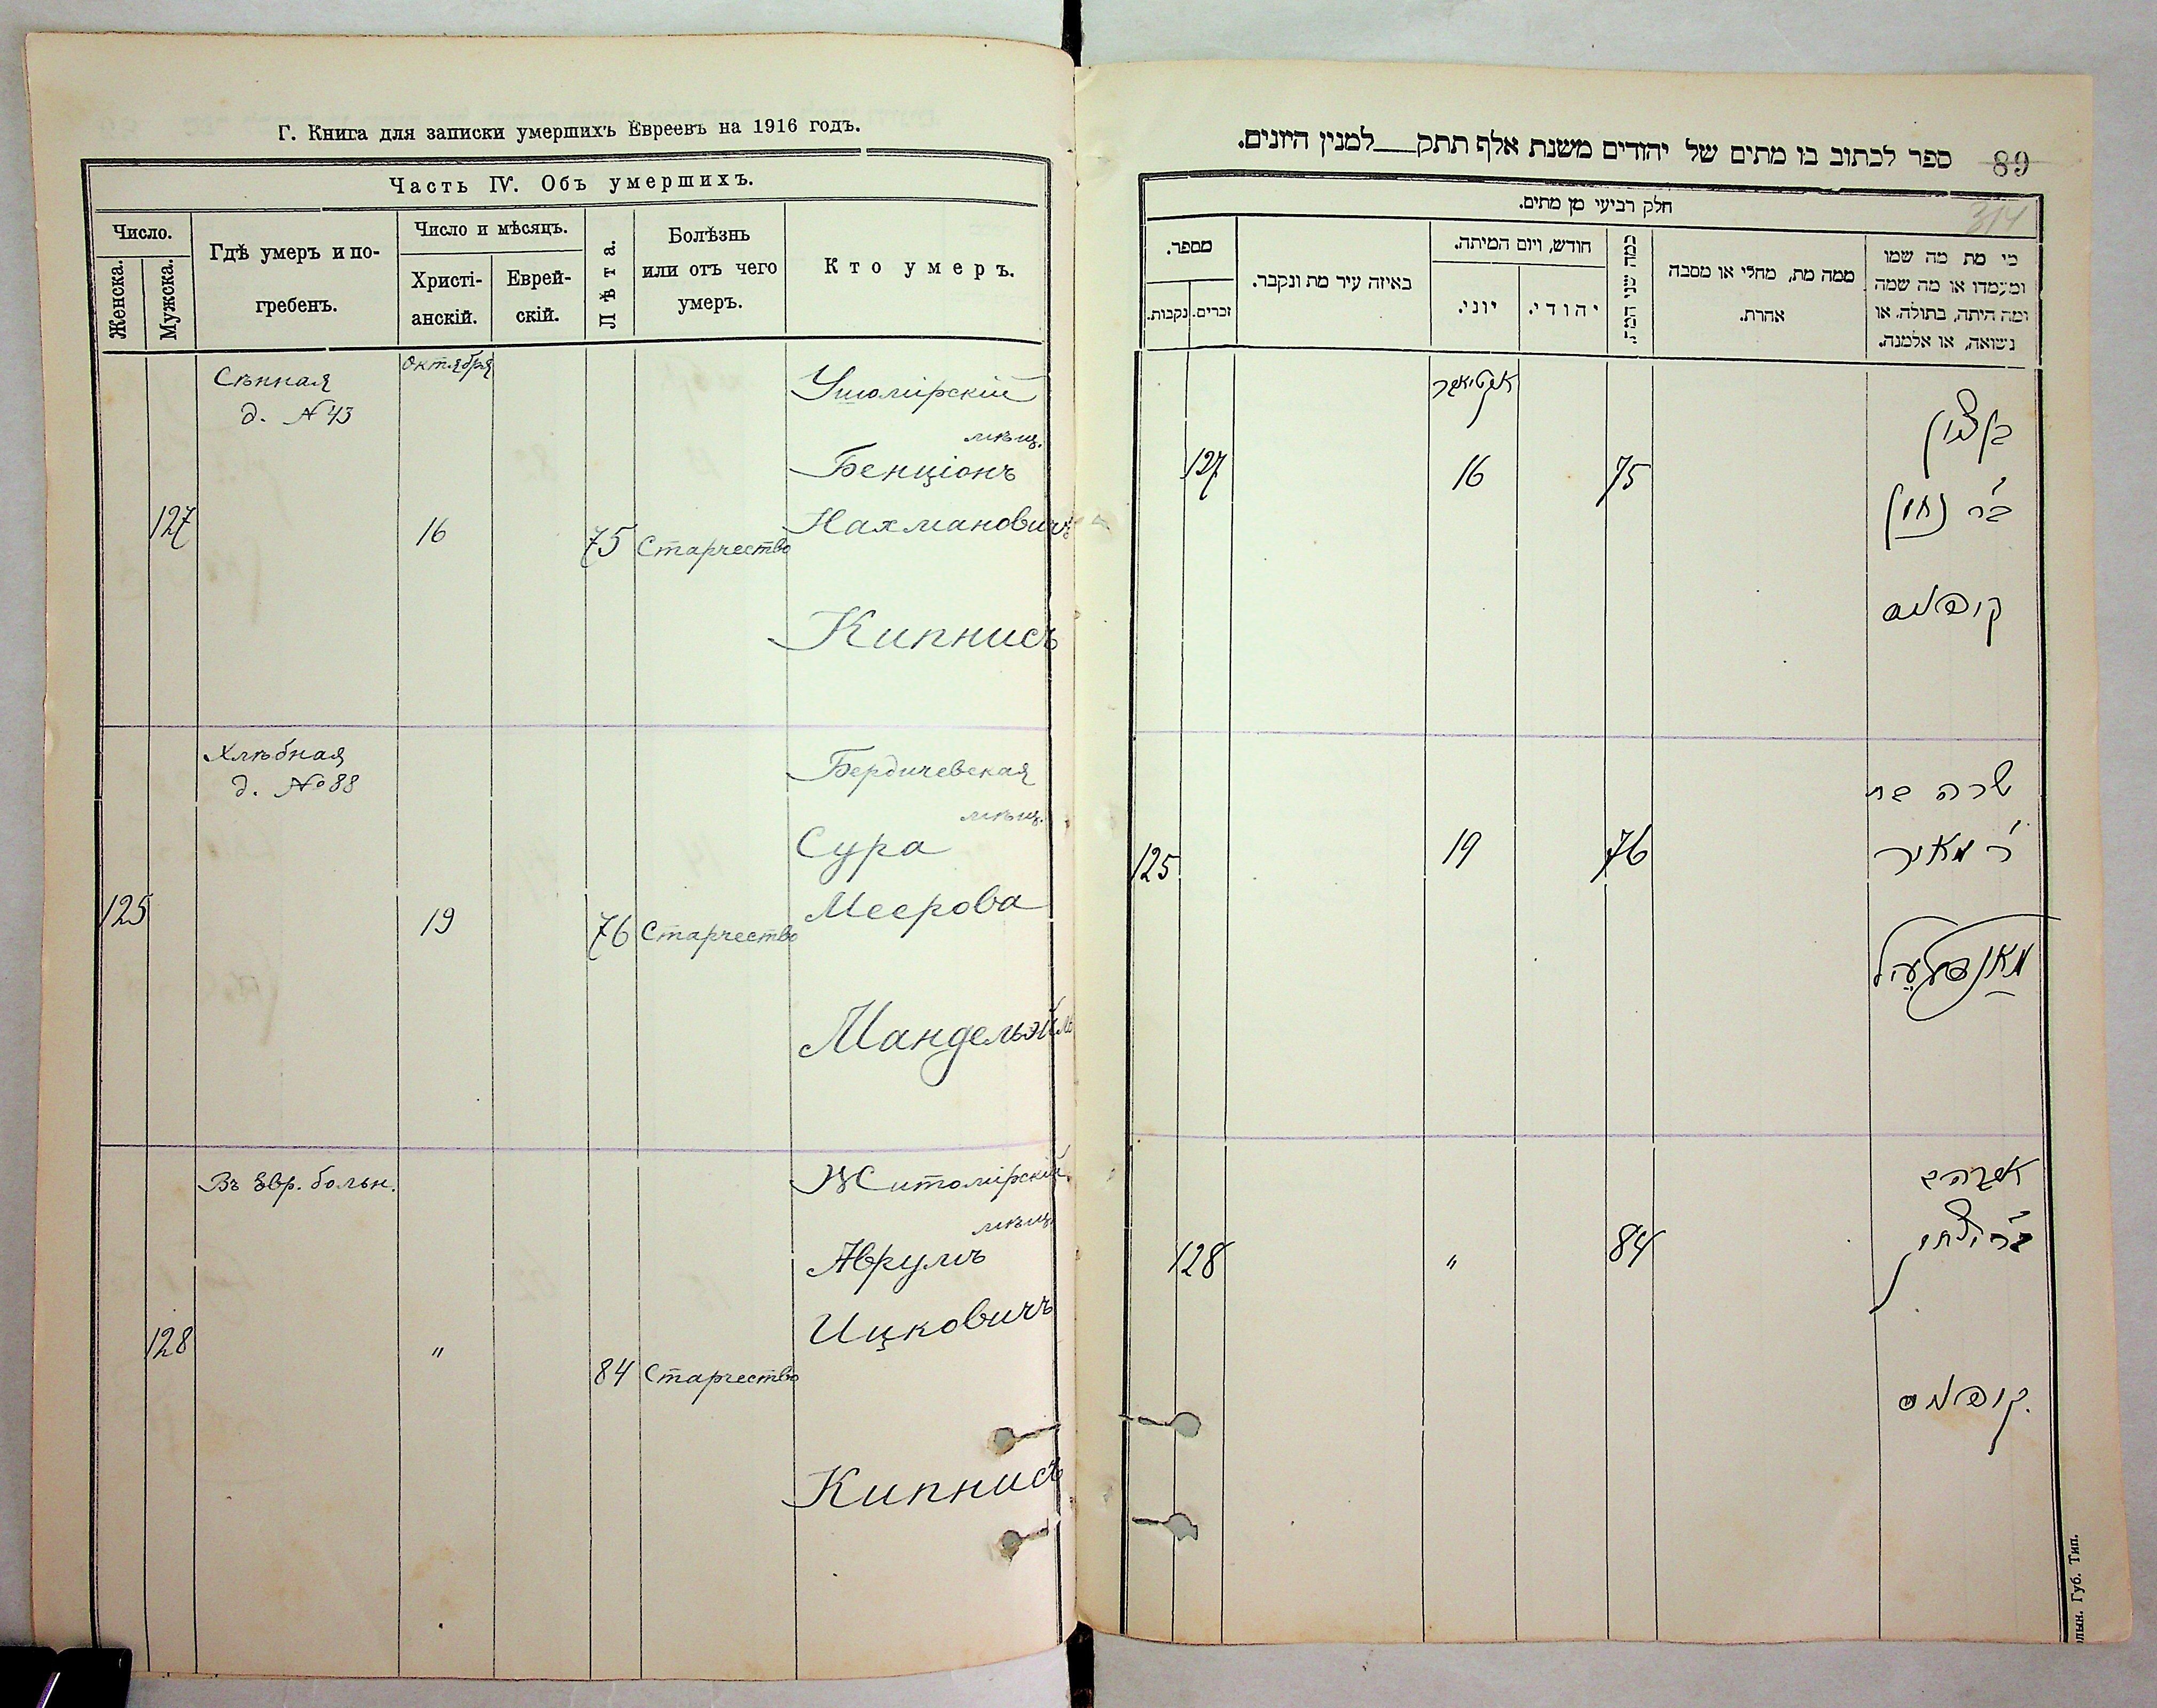 Г. Книга для записки умершихъ Евреевъ на 1916 годъ.
Часть IV. Объ умершихъ.
Число.
Женска.
Мужска.
Гдѣ умеръ и по-
гребенъ.
Число и мѣсяцъ.
Христі-
анскій.
Еврей-
скій.
Лѣта.
Болѣзнь
или отъ чего
умеръ.
Кто умеръ.
Октября
Сѣнная
д. № 43
127
16
75
Старчество
Ушомірскій
мѣщ.
Бенціонъ
Нахмановичъ
Кипнисъ
Хлѣбная
д. № 88
125
19
76
Старчество
Бердичевская
мѣщ.
Сура
Меерова
Мандельэйль
Въ Евр. больн.
128
"
84
Старчество
Житомірскій
мѣщ.
Аврумъ
Ицковичъ
Кипнисъ
ספר לכתוב בו מתים של יהודים משנת אלף תתק___למנין היונים.
89
314
חלק רביעי מן מתים.
מספר.
זכרים.
נקבות.
באיזה עיר מת ונקבר.
חודש, ויום המיתה.
יוני.
יהודי.
כמה שני המת.
ממה מת, מחלי או מסבה
אחרת.
מי מת מה שמו
ומעמדו או מה שמה
ומה היתה, בתולה, או
נשואה, או אלמנה.
אקטיאבר
127
16
75
בן ציון
ב"ר נחמן
קיפניס
125
19
76
שרה בת
ר' מאיר
128
"
84
אברהם
ב"ר יצחק
קיפניס
Губ. Тип.